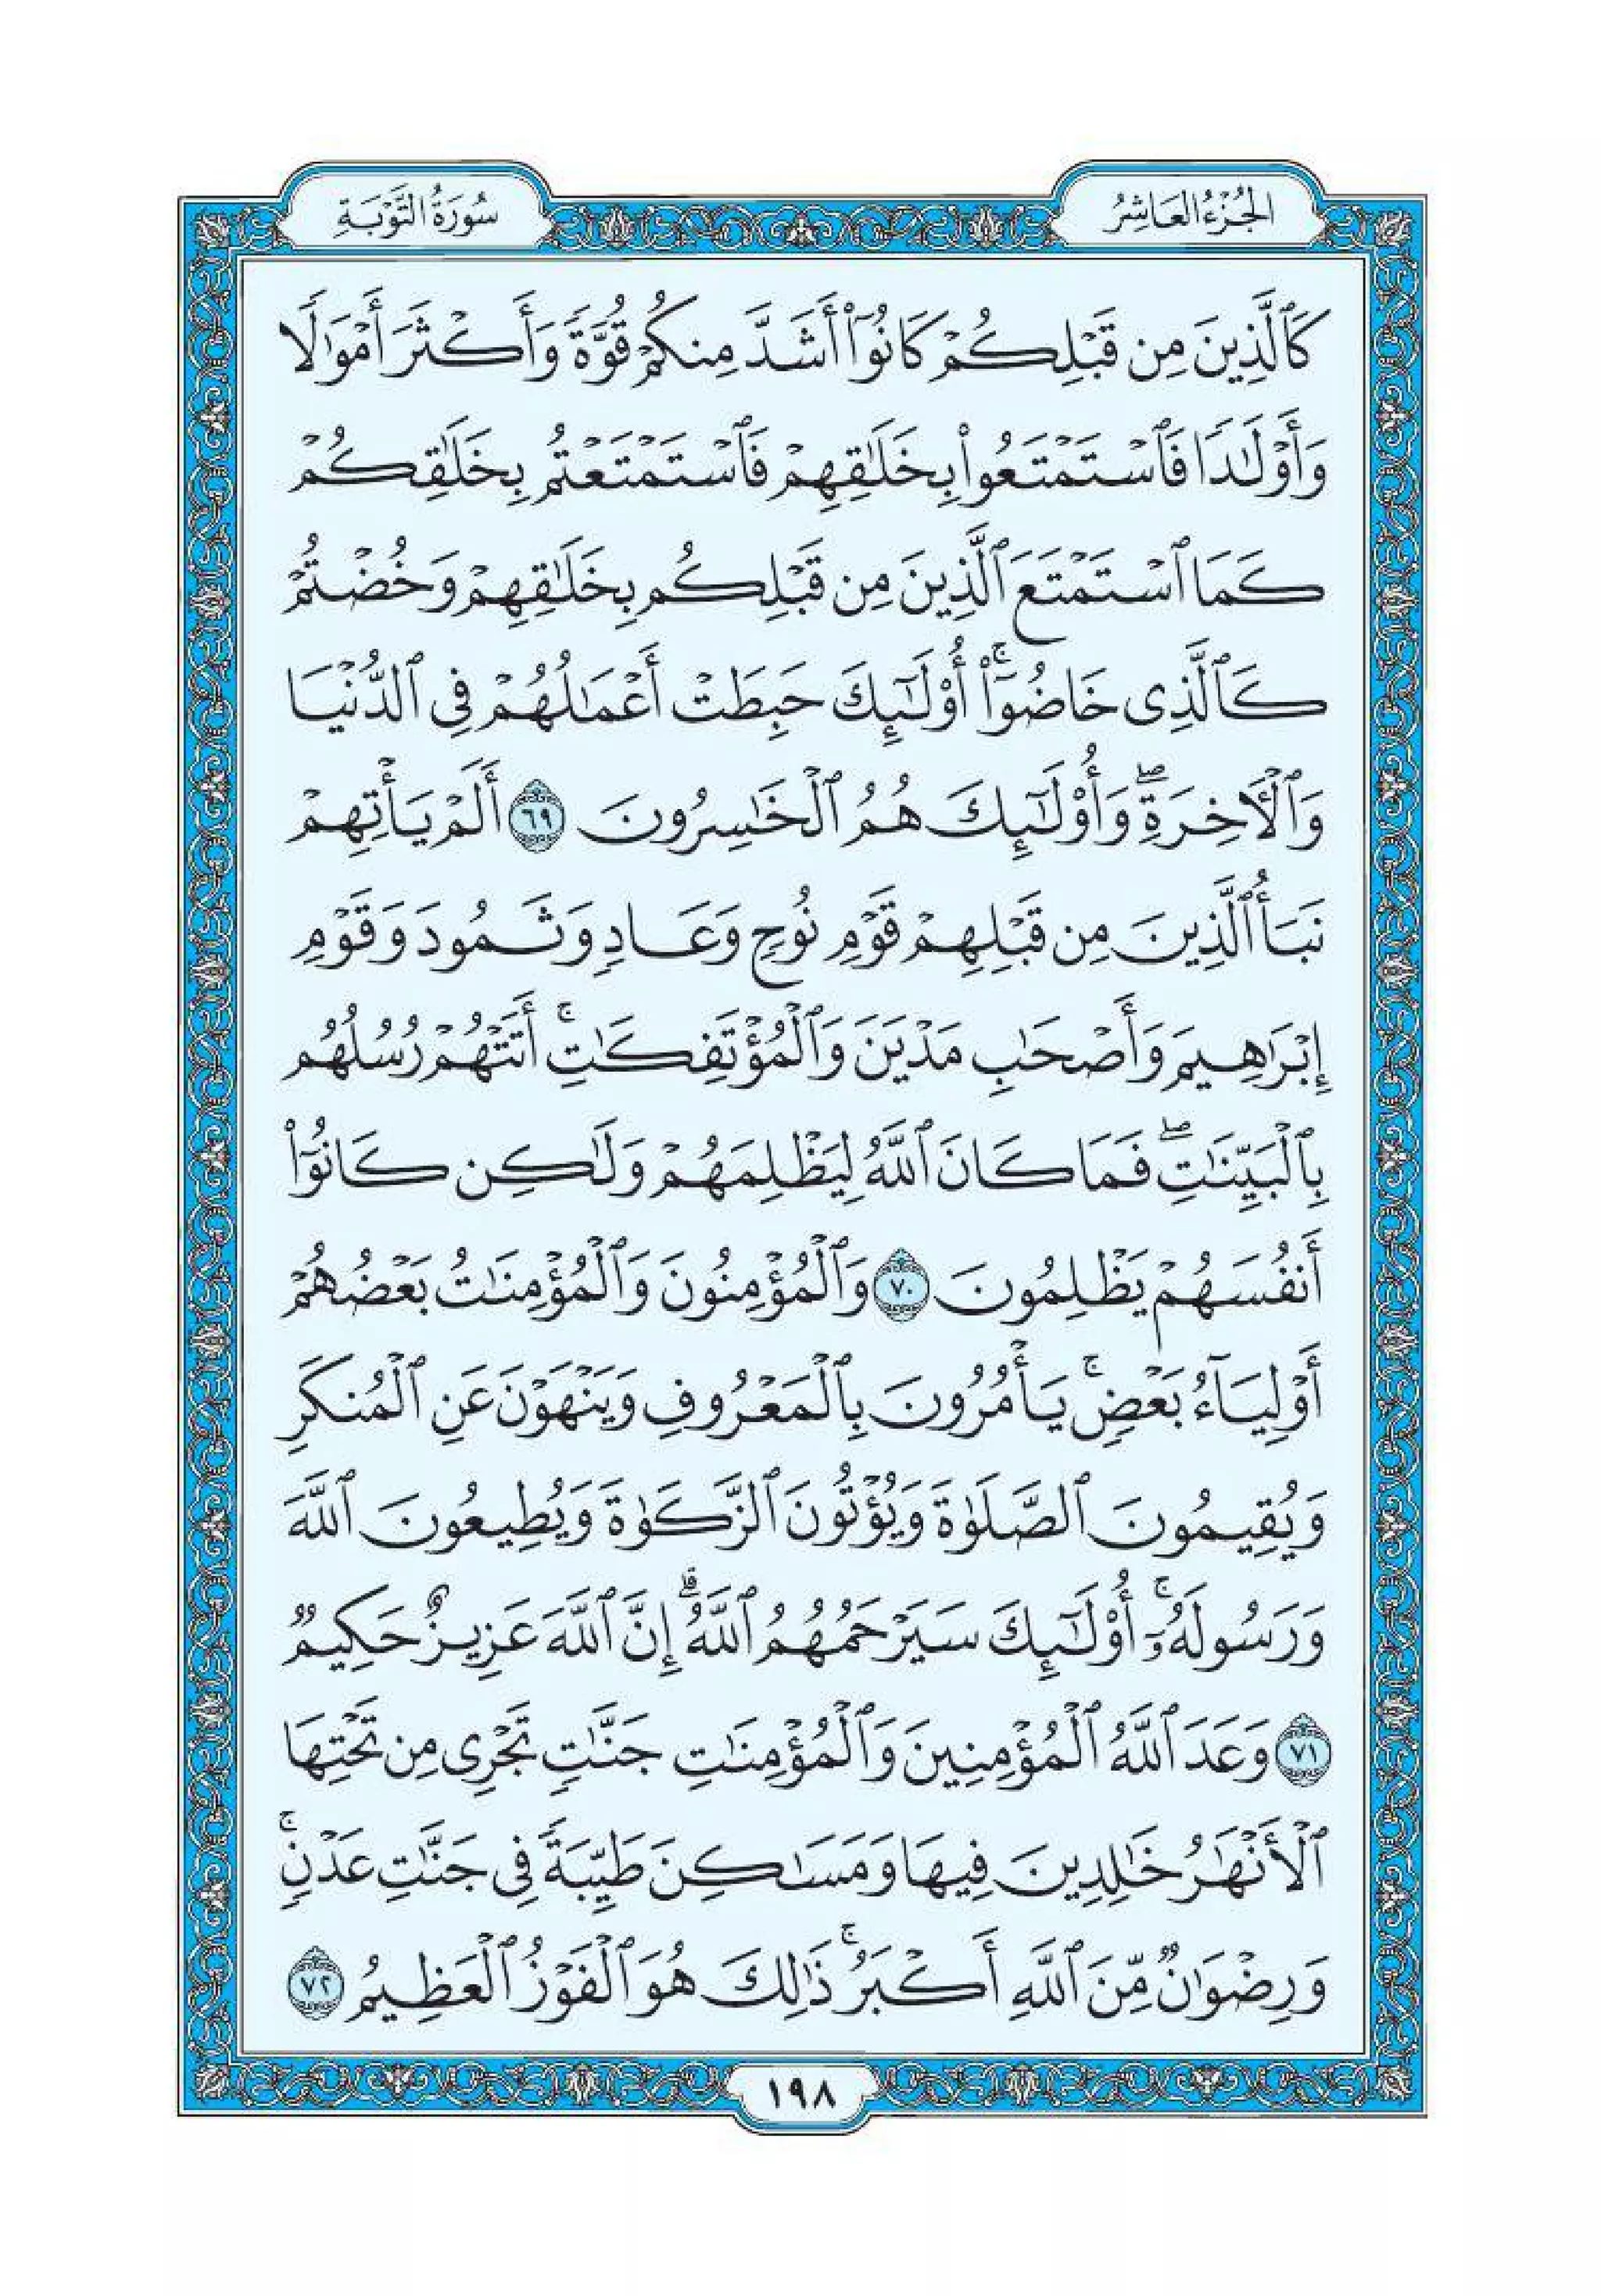 الجُزْءُ العَاشِرُ
سُورَةُ التَّوْبَةِ
كَٱلَّذِينَ مِن قَبْلِكُمْ كَانُوٓا۟ أَشَدَّ مِنكُمْ قُوَّةً وَأَكْثَرَ أَمْوَٰلًا
وَأَوْلَٰدًا فَٱسْتَمْتَعُوا۟ بِخَلَٰقِهِمْ فَٱسْتَمْتَعْتُم بِخَلَٰقِكُمْ
كَمَا ٱسْتَمْتَعَ ٱلَّذِينَ مِن قَبْلِكُم بِخَلَٰقِهِمْ وَخُضْتُمْ
كَٱلَّذِى خَاضُوٓا۟ ۚ أُو۟لَٰٓئِكَ حَبِطَتْ أَعْمَٰلُهُمْ فِى ٱلدُّنْيَا
وَٱلْءَاخِرَةِ ۖ وَأُو۟لَٰٓئِكَ هُمُ ٱلْخَٰسِرُونَ ٦٩ أَلَمْ يَأْتِهِمْ
نَبَأُ ٱلَّذِينَ مِن قَبْلِهِمْ قَوْمِ نُوحٍ وَعَادٍ وَثَمُودَ وَقَوْمِ
إِبْرَٰهِيمَ وَأَصْحَٰبِ مَدْيَنَ وَٱلْمُؤْتَفِكَٰتِ ۚ أَتَتْهُمْ رُسُلُهُم
بِٱلْبَيِّنَٰتِ ۖ فَمَا كَانَ ٱللَّهُ لِيَظْلِمَهُمْ وَلَٰكِن كَانُوٓا۟
أَنفُسَهُمْ يَظْلِمُونَ ٧٠ وَٱلْمُؤْمِنُونَ وَٱلْمُؤْمِنَٰتُ بَعْضُهُمْ
أَوْلِيَآءُ بَعْضٍ ۚ يَأْمُرُونَ بِٱلْمَعْرُوفِ وَيَنْهَوْنَ عَنِ ٱلْمُنكَرِ
وَيُقِيمُونَ ٱلصَّلَوٰةَ وَيُؤْتُونَ ٱلزَّكَوٰةَ وَيُطِيعُونَ ٱللَّهَ
وَرَسُولَهُۥٓ ۚ أُو۟لَٰٓئِكَ سَيَرْحَمُهُمُ ٱللَّهُ ۗ إِنَّ ٱللَّهَ عَزِيزٌ حَكِيمٌ
٧١ وَعَدَ ٱللَّهُ ٱلْمُؤْمِنِينَ وَٱلْمُؤْمِنَٰتِ جَنَّٰتٍ تَجْرِى مِن تَحْتِهَا
ٱلْأَنْهَٰرُ خَٰلِدِينَ فِيهَا وَمَسَٰكِنَ طَيِّبَةً فِى جَنَّٰتِ عَدْنٍ ۚ
وَرِضْوَٰنٌ مِّنَ ٱللَّهِ أَكْبَرُ ۚ ذَٰلِكَ هُوَ ٱلْفَوْزُ ٱلْعَظِيمُ ٧٢
١٩٨